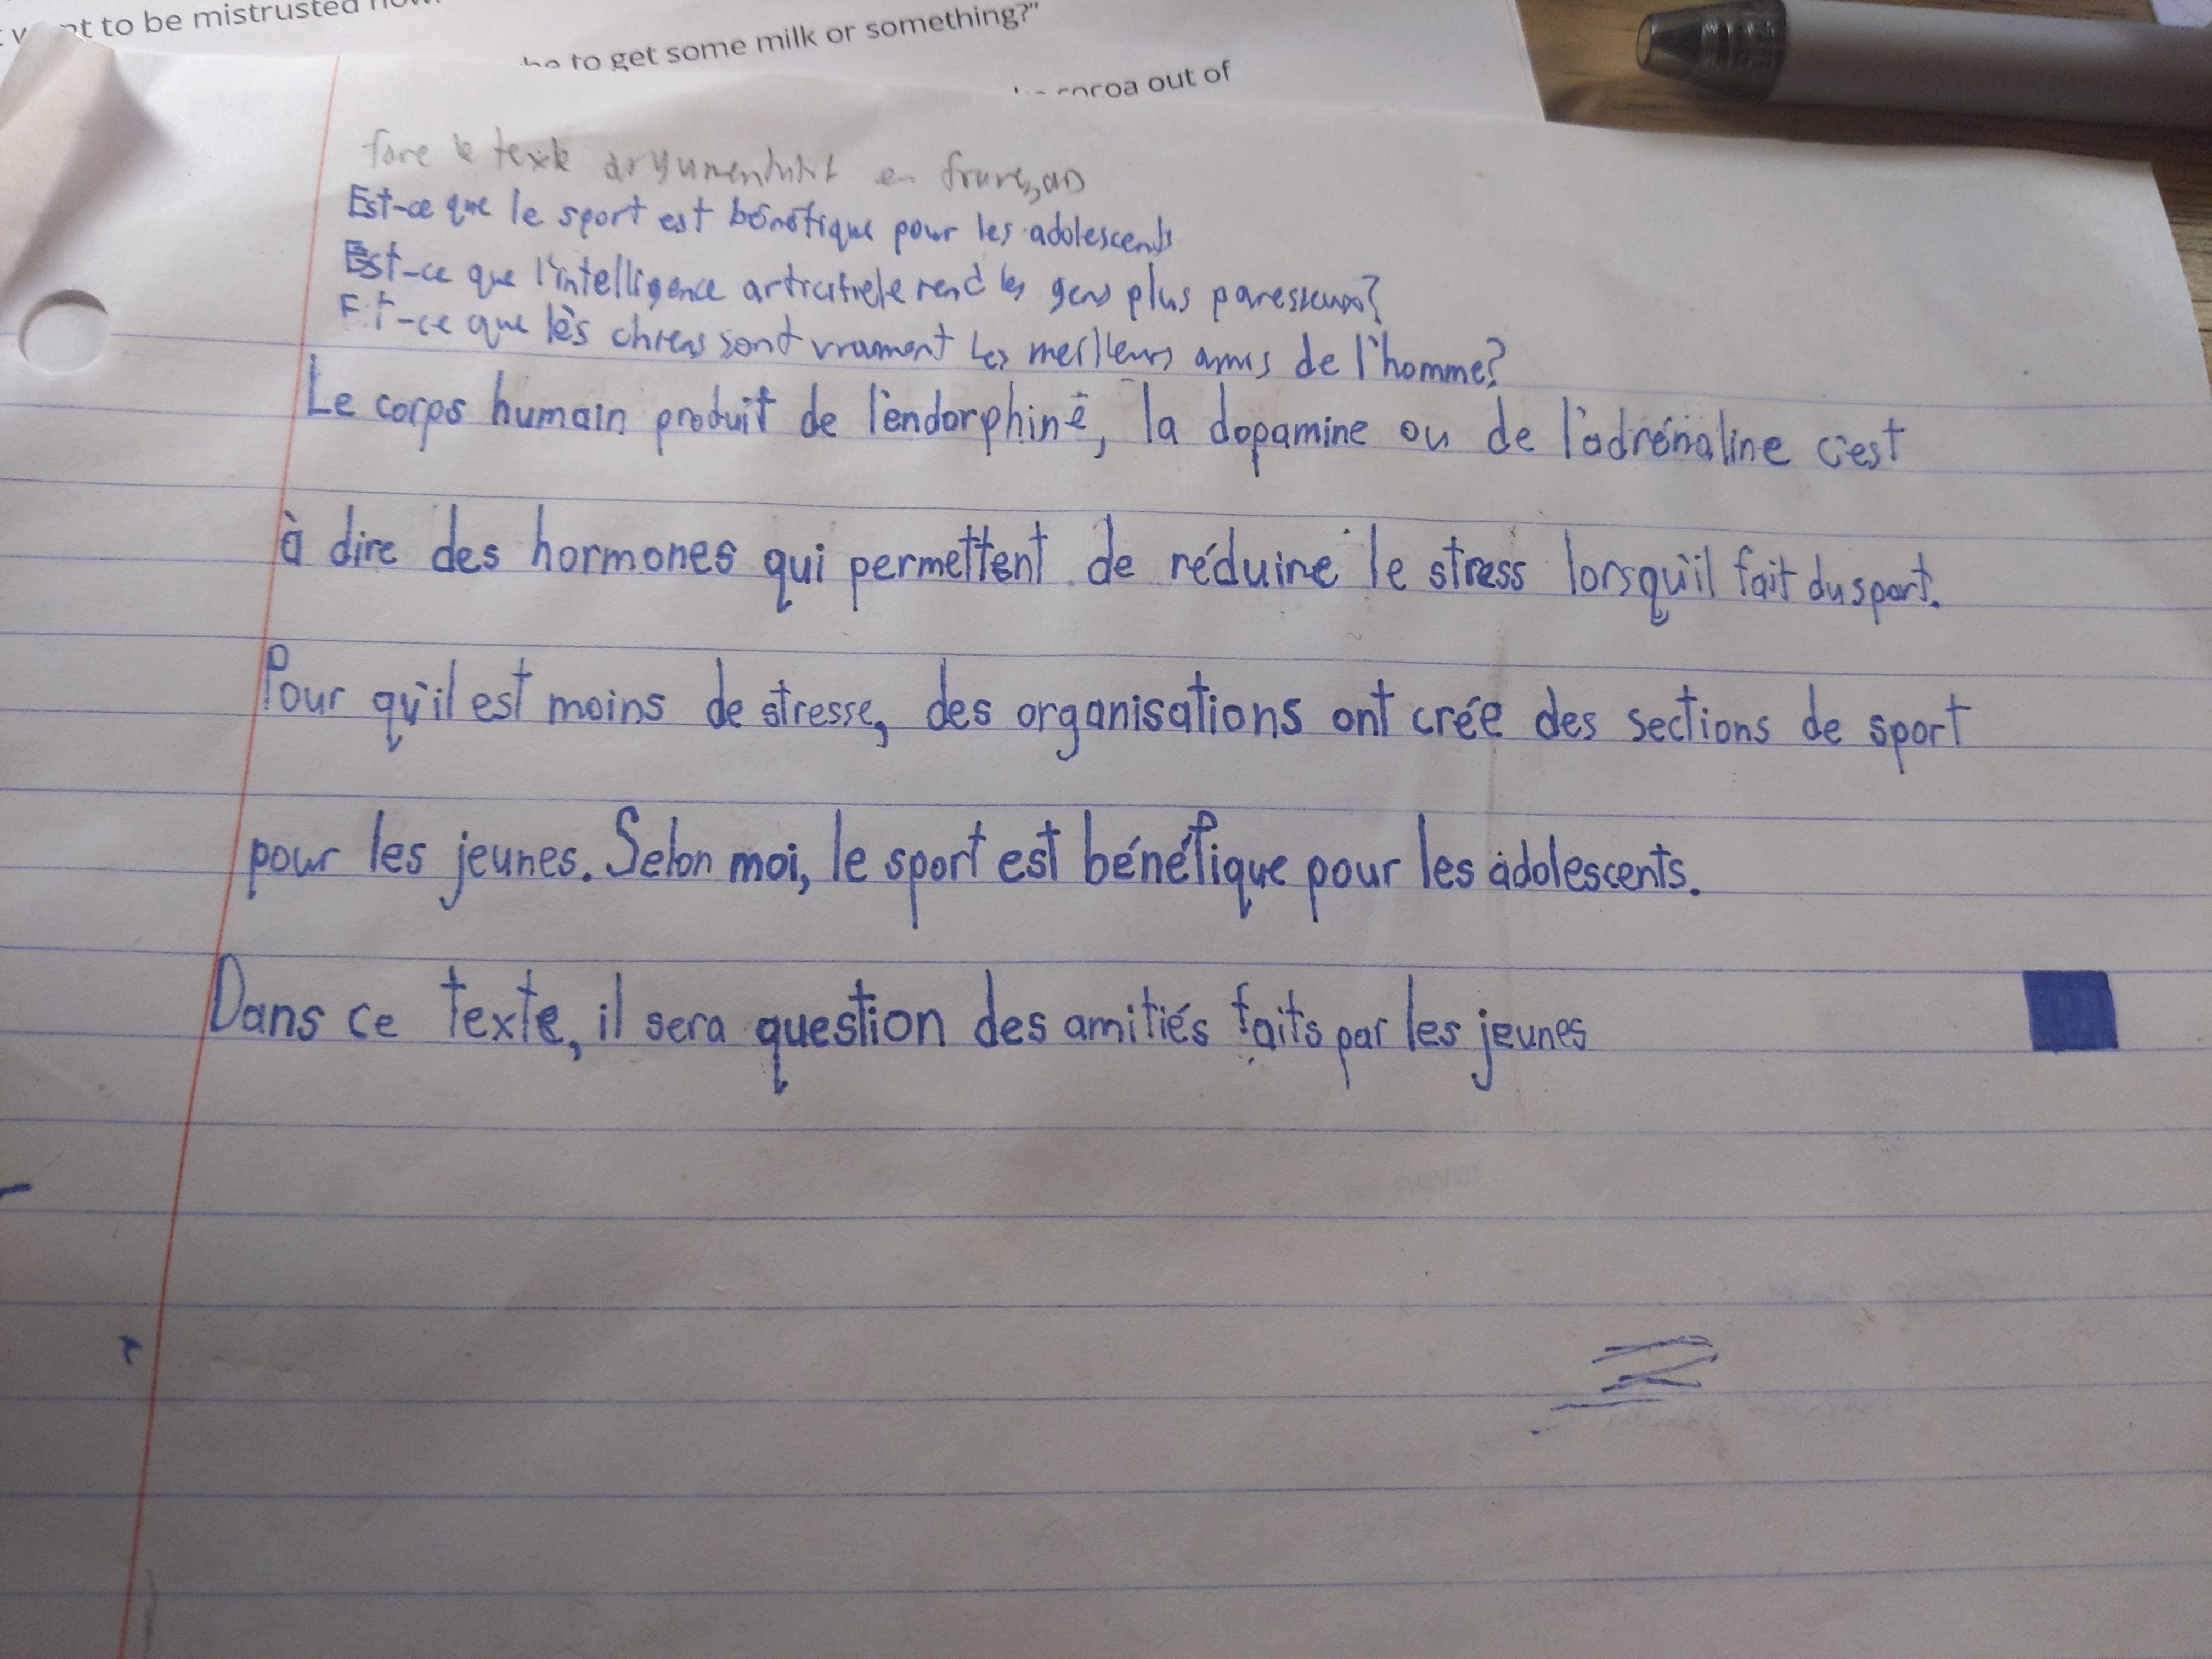 nt to be mistrusted now.
to get some milk or something?"
cocoa out of
le texte en
Est-ce que le sport est bénéfique pour les adolescents
Est-ce que l'intelligence articifiele rend les gens plus paresseux?
Est-ce que les chiens sont vraiment les meilleurs amis de l'homme?
Le corps humain produit de l'endorphine, la dopamine ou de l'adrénaline c'est
à dire des hormones qui permettent de réduire le stress lorsqu'il fait du sport.
Pour qu'il est moins de stresse, des organisations ont crée des sections de sport
pour les jeunes. Selon moi, le sport est bénéfique pour les adolescents.
Dans ce texte, il sera question des amitiés faits par les jeunes